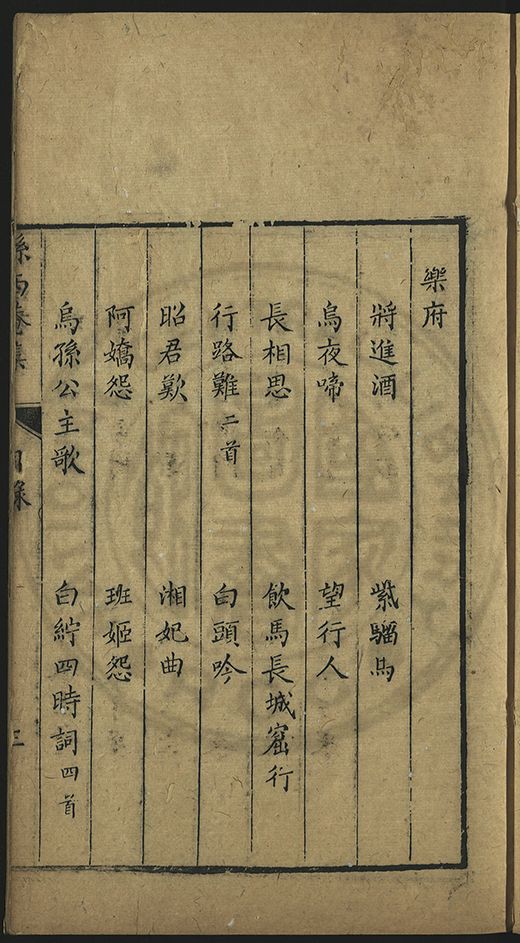 樂府
將進酒 紫騮馬
烏夜啼 望行人
長相思 飲馬長城窟行
行路難二首 白頭吟
昭君歎 湘妃曲
阿嬌怨 班姬怨
烏孫公主歌 白紵四時詞四首
西菴集 目錄 三